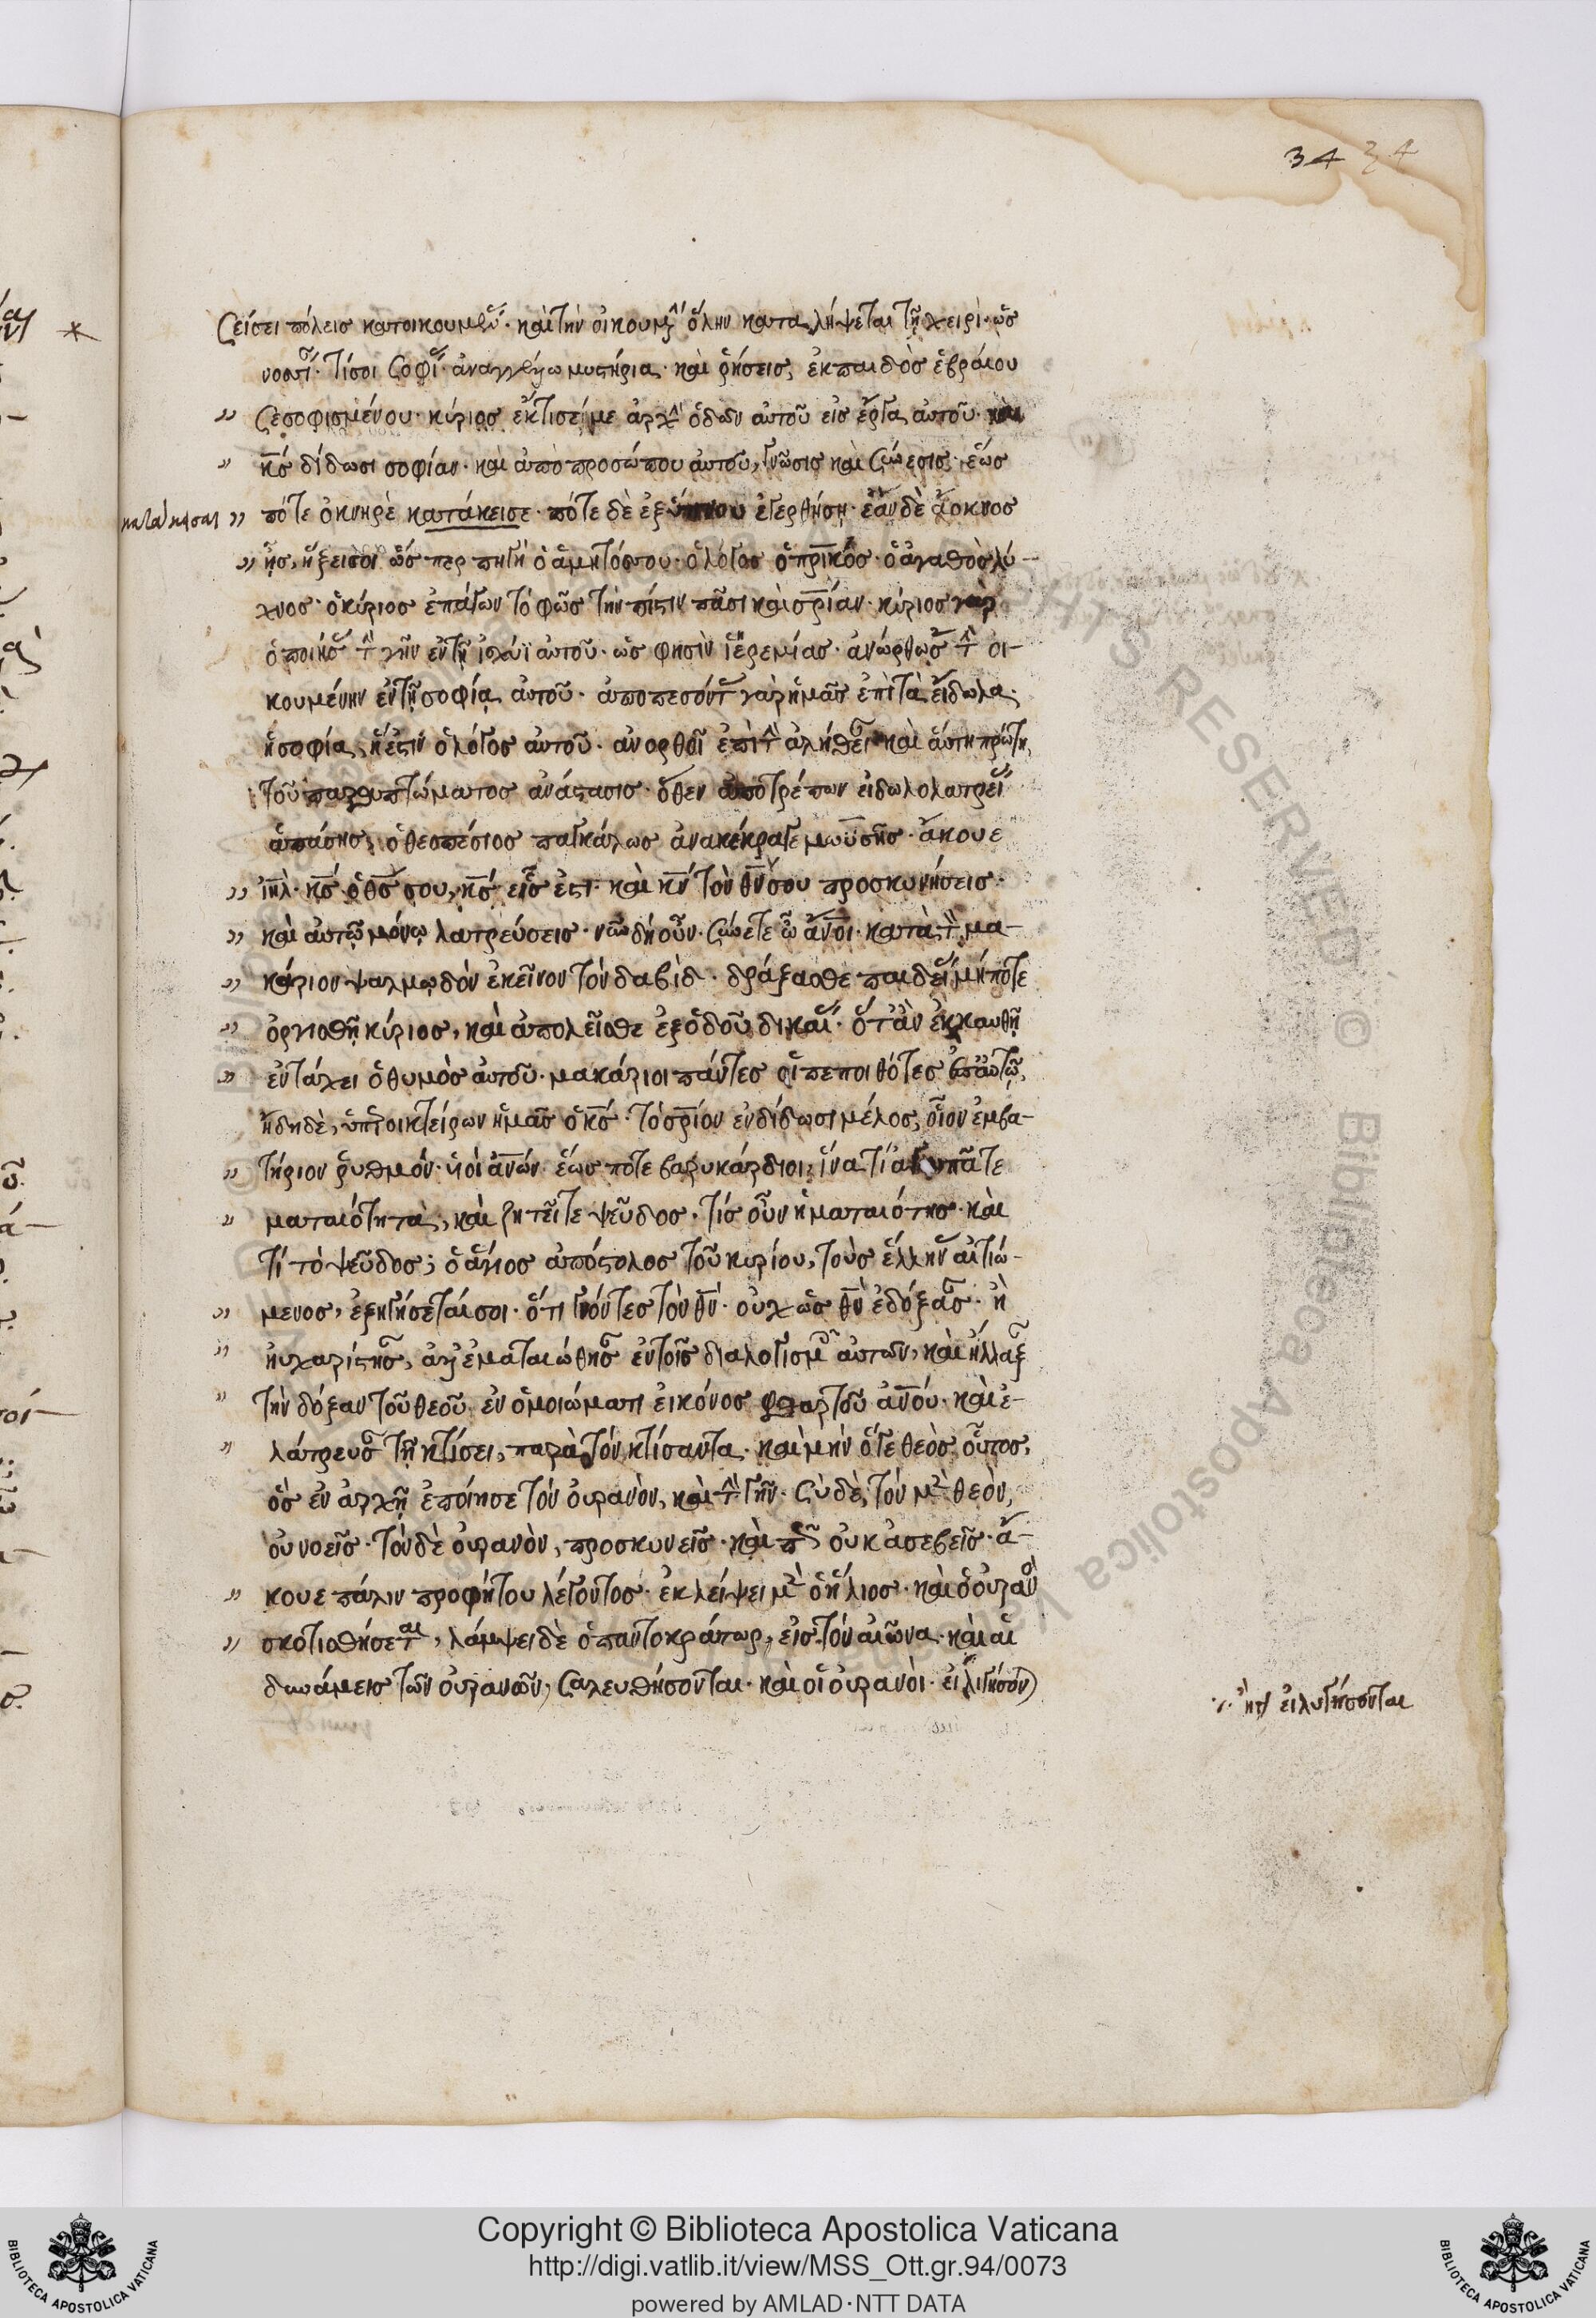 34 34
σείσει πόλεισ κατοικουμέν· καὶ τὴν οἰκουμ´ ὅλην καταλήψεται τῆ χειρὶ· ὡσ
νοσσ· τί σοι σοφί· ἀναγγέλλω μυστήρια· καὶ ῥήσεισ, ἐκ παιδὸσ ἑβραίου
" σεσοφισμένου· κύριοσ ἔκτισέ με ἀρχὴ ὁδῶν αὐτοῦ εἰσ ἔργα αὐτοῦ·
" κ̅σ̅ δίδωσι σοφίαν· καὶ ἀπὸ προσώπου αὐτοῦ, γνῶσισ καὶ σύνεσισ· ἕωσ
" πότε ὀκνηρὲ κατάκεισε· πότε δὲ ἐξ ὕπνου ἐγερθήση· ἐὰν δὲ ἄοκνοσ
" ἦσ, ἥξει σοι ὥσπερ πηγὴ ὁ ἀμητόσ σου· ὁ λόγοσ ὁ π̅ρ̅ικὸσ· ὁ ἀγαθὸσ λύ-
χνοσ· ὁ κύριοσ ἐπάγων τὸ φῶσ τὴν πίστιν πᾶσι καὶ σ̅ρ̅ίαν· κύριοσ γὰρ
ὁ ποιήσ τ γῆν ἐν τῆ ἰσχύϊ αὐτοῦ· ὥσ φησὶν ἱερεμίασ· ἀνώρθωσ τ οἰ-
κουμένην ἐν τῆ σοφία αὐτοῦ· ἀποπεσόντ γὰρ ἡμᾶσ ἐπὶ τὰ εἴδωλα·
ἡ σοφία, ἥ ἐστιν ὁ λόγοσ αὐτοῦ· ἀνορθοῖ ἐπὶ τ ἀλήθει καὶ αὕτη πρώτη,
τοῦ παραπτώματοσ ἀνάστασισ· ὅθεν ἀποτρέπων εἰδωλολατρεί
ἁπάσησ, ὁ θεσπέσιοσ παγκάλωσ ἀνακέκραγε μωϋσῆσ· ἄκουε
" ι̅η̅λ̅· κ̅σ̅ ὁ θ̅σ̅ σου, κ̅σ̅ εἷσ ἐστι· καὶ κ̅ν̅ τὸν θ̅ν̅ σου προσκυνήσεισ·
" καὶ αὐτῶ μόνω λατρεύσεισ· νῦν δὴ οὖν· σύνετε ὦ α̅ν̅οι· κατὰ τ μα-
" κάριον ψαλμωδὸν ἐκεῖνον τὸν δαβίδ· δράξασθε παιδεί μήποτε
" ὀργισθῆ κύριοσ, καὶ ἀπολεῖσθε ἐξ ὁδοῦ δικαί· ὅτ ἂν ἐκκαυθῆ
" ἐν τάχει ὁ θυμὸσ αὐτοῦ· μακάριοι πάντεσ οἱ πεποιθότεσ ἐπ αὐτῶ,
ἤδη δὲ, ὑπ οἰκτείρων ἡμᾶσ ὁ κ̅σ̅· τὸ σ̅ρ̅ίον ἐνδίδωσι μέλοσ, οἷον ἐμβα-
" τήριον ῥυθμόν· υἱοὶ α̅ν̅ων· ἕωσ πότε βαρυκάρδιοι, ἵνα τί ἀγαπᾶτε
" ματαιότητα, καὶ ζητεῖτε ψεῦδοσ· τίσ οὖν ἡ ματαιότησ· καὶ
τί τὸ ψεῦδοσ; ὁ ἅγιοσ ἀπόστολοσ τοῦ κυρίου, τοὺσ ἕλλην αἰτιώ-
" μενοσ, ἐξηγήσεταί σοι· ὅτι γνόντεσ τὸν θ̅ν̅· οὐχ ὡσ θ̅ν̅ ἐδόξασ· ἢ
" ηὐχαρίστησ, ἀλλ ἐματαιώθησ ἐν τοῖσ διαλογισμ αὐτῶν, καὶ ἤλλαξ
" τὴν δόξαν τοῦ θεοῦ ἐν ὁμοιώματι εἰκόνοσ φθαρτοῦ α̅ν̅ου· καὶ ἐ-
" λάτρευσ τῆ κτίσει, παρὰ τὸν κτίσαντα· καὶ μὴν ὅ γε θεὸσ οὗτοσ,
ὃσ ἐν ἀρχῆ ἐποίησε τὸν οὐρανὸν, καὶ τ γῆν· σὺ δὲ, τὸν μ θεὸν,
οὐ νοεῖσ· τὸν δὲ οὐρανὸν, προσκυνεῖσ· καὶ π οὐκ ἀσεβεῖσ· ἄ-
" κουε πάλιν προφήτου λέγοντοσ· ἐκλείψει μ ὁ ἥλιοσ· καὶ ὁ οὐραν
" σκοτισθήσεται, λάμψει δὲ ὁ παντοκράτωρ, εἰσ τὸν αἰῶνα· καὶ αἱ
δυνάμεισ τῶν οὐρανῶν, σαλευθήσονται· καὶ οἱ οὐρανοὶ· εἱλιγήσον
εἰλυγήσονται
Copyright © Biblioteca Apostolica Vaticana
http://digi.vatlib.it/view/MSS_Ott.gr.94/0073
powered by AMLAD·NTT DATA